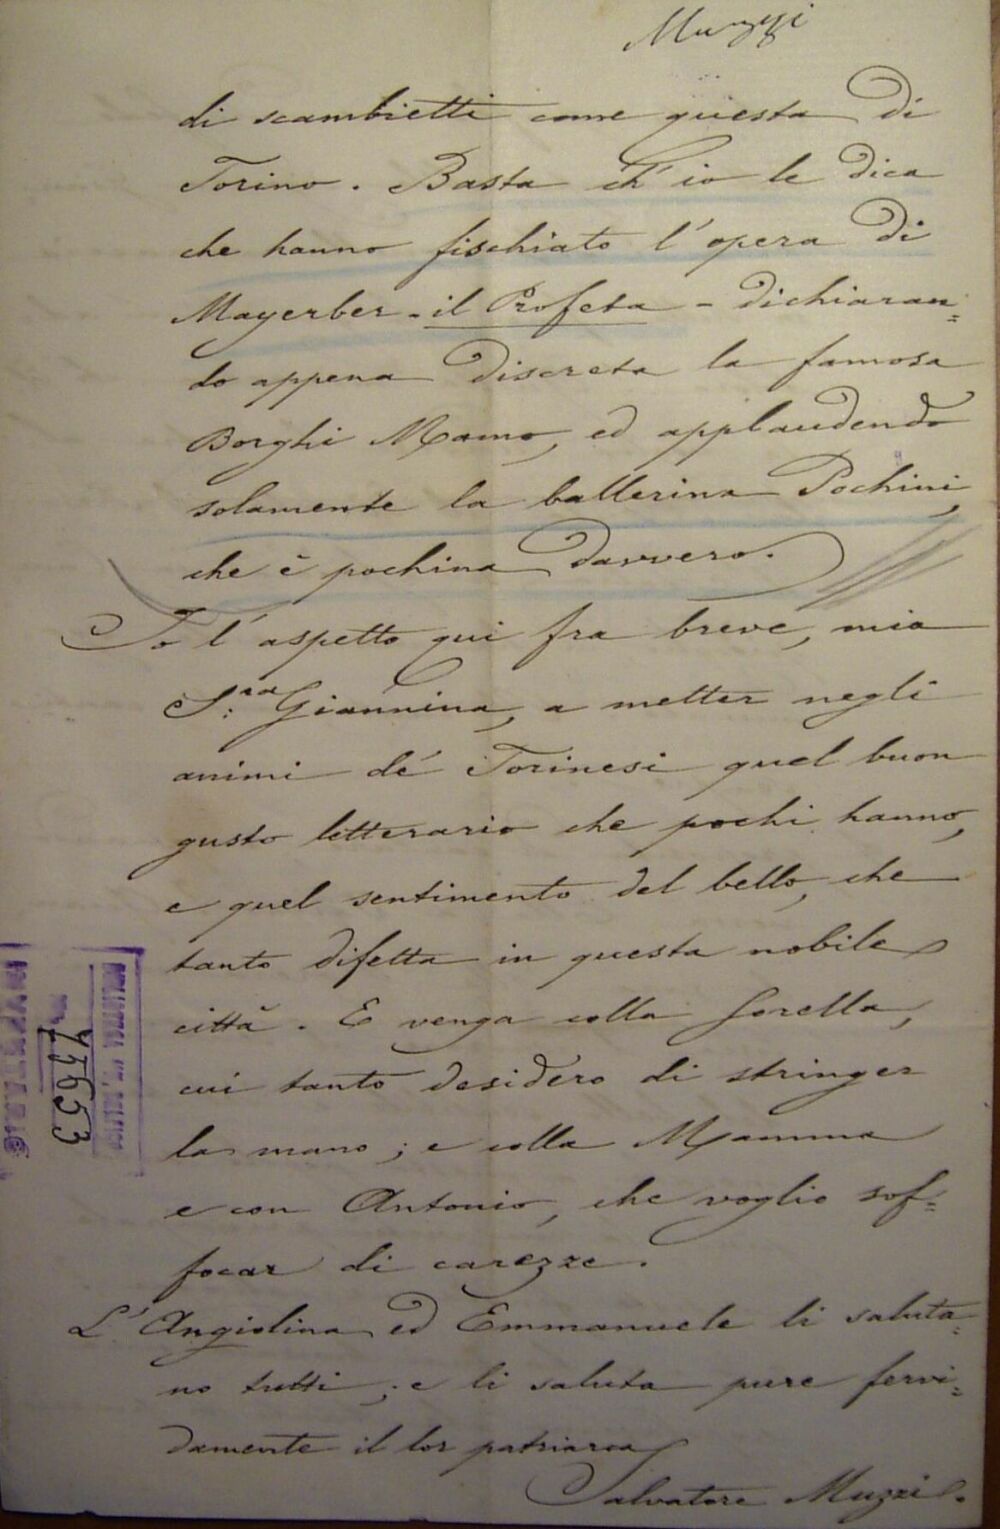 Muzzi
di scambietti come questa di
Torino. Basta ch'io le dica
che hanno fischiato l'opera di
Mayerber - il Profeta - dichiaran=
do appena discreta la famosa
Borghi Mamo, ed applaudendo
solamente la ballerina Pochini,
che è pochina davvero.
Io l'aspetto qui fra breve, mia
S.ra Giannina, a metter negli
animi de' Torinesi quel buon
gusto letterario che pochi hanno,
e quel sentimento del bello, che
tanto difetta in questa nobile
città. E venga colla Sorella,
cui tanto desidero di stringer
la mano; e colla Mamma
e con Antonio, che voglio sof=
focar di carezze.
L'Angiolina ed Emmanuele li saluta=
no tutti; e li saluta pure fervi=
damente il lor patriarca
Salvatore Muzzi.
INVENTARIO
75653